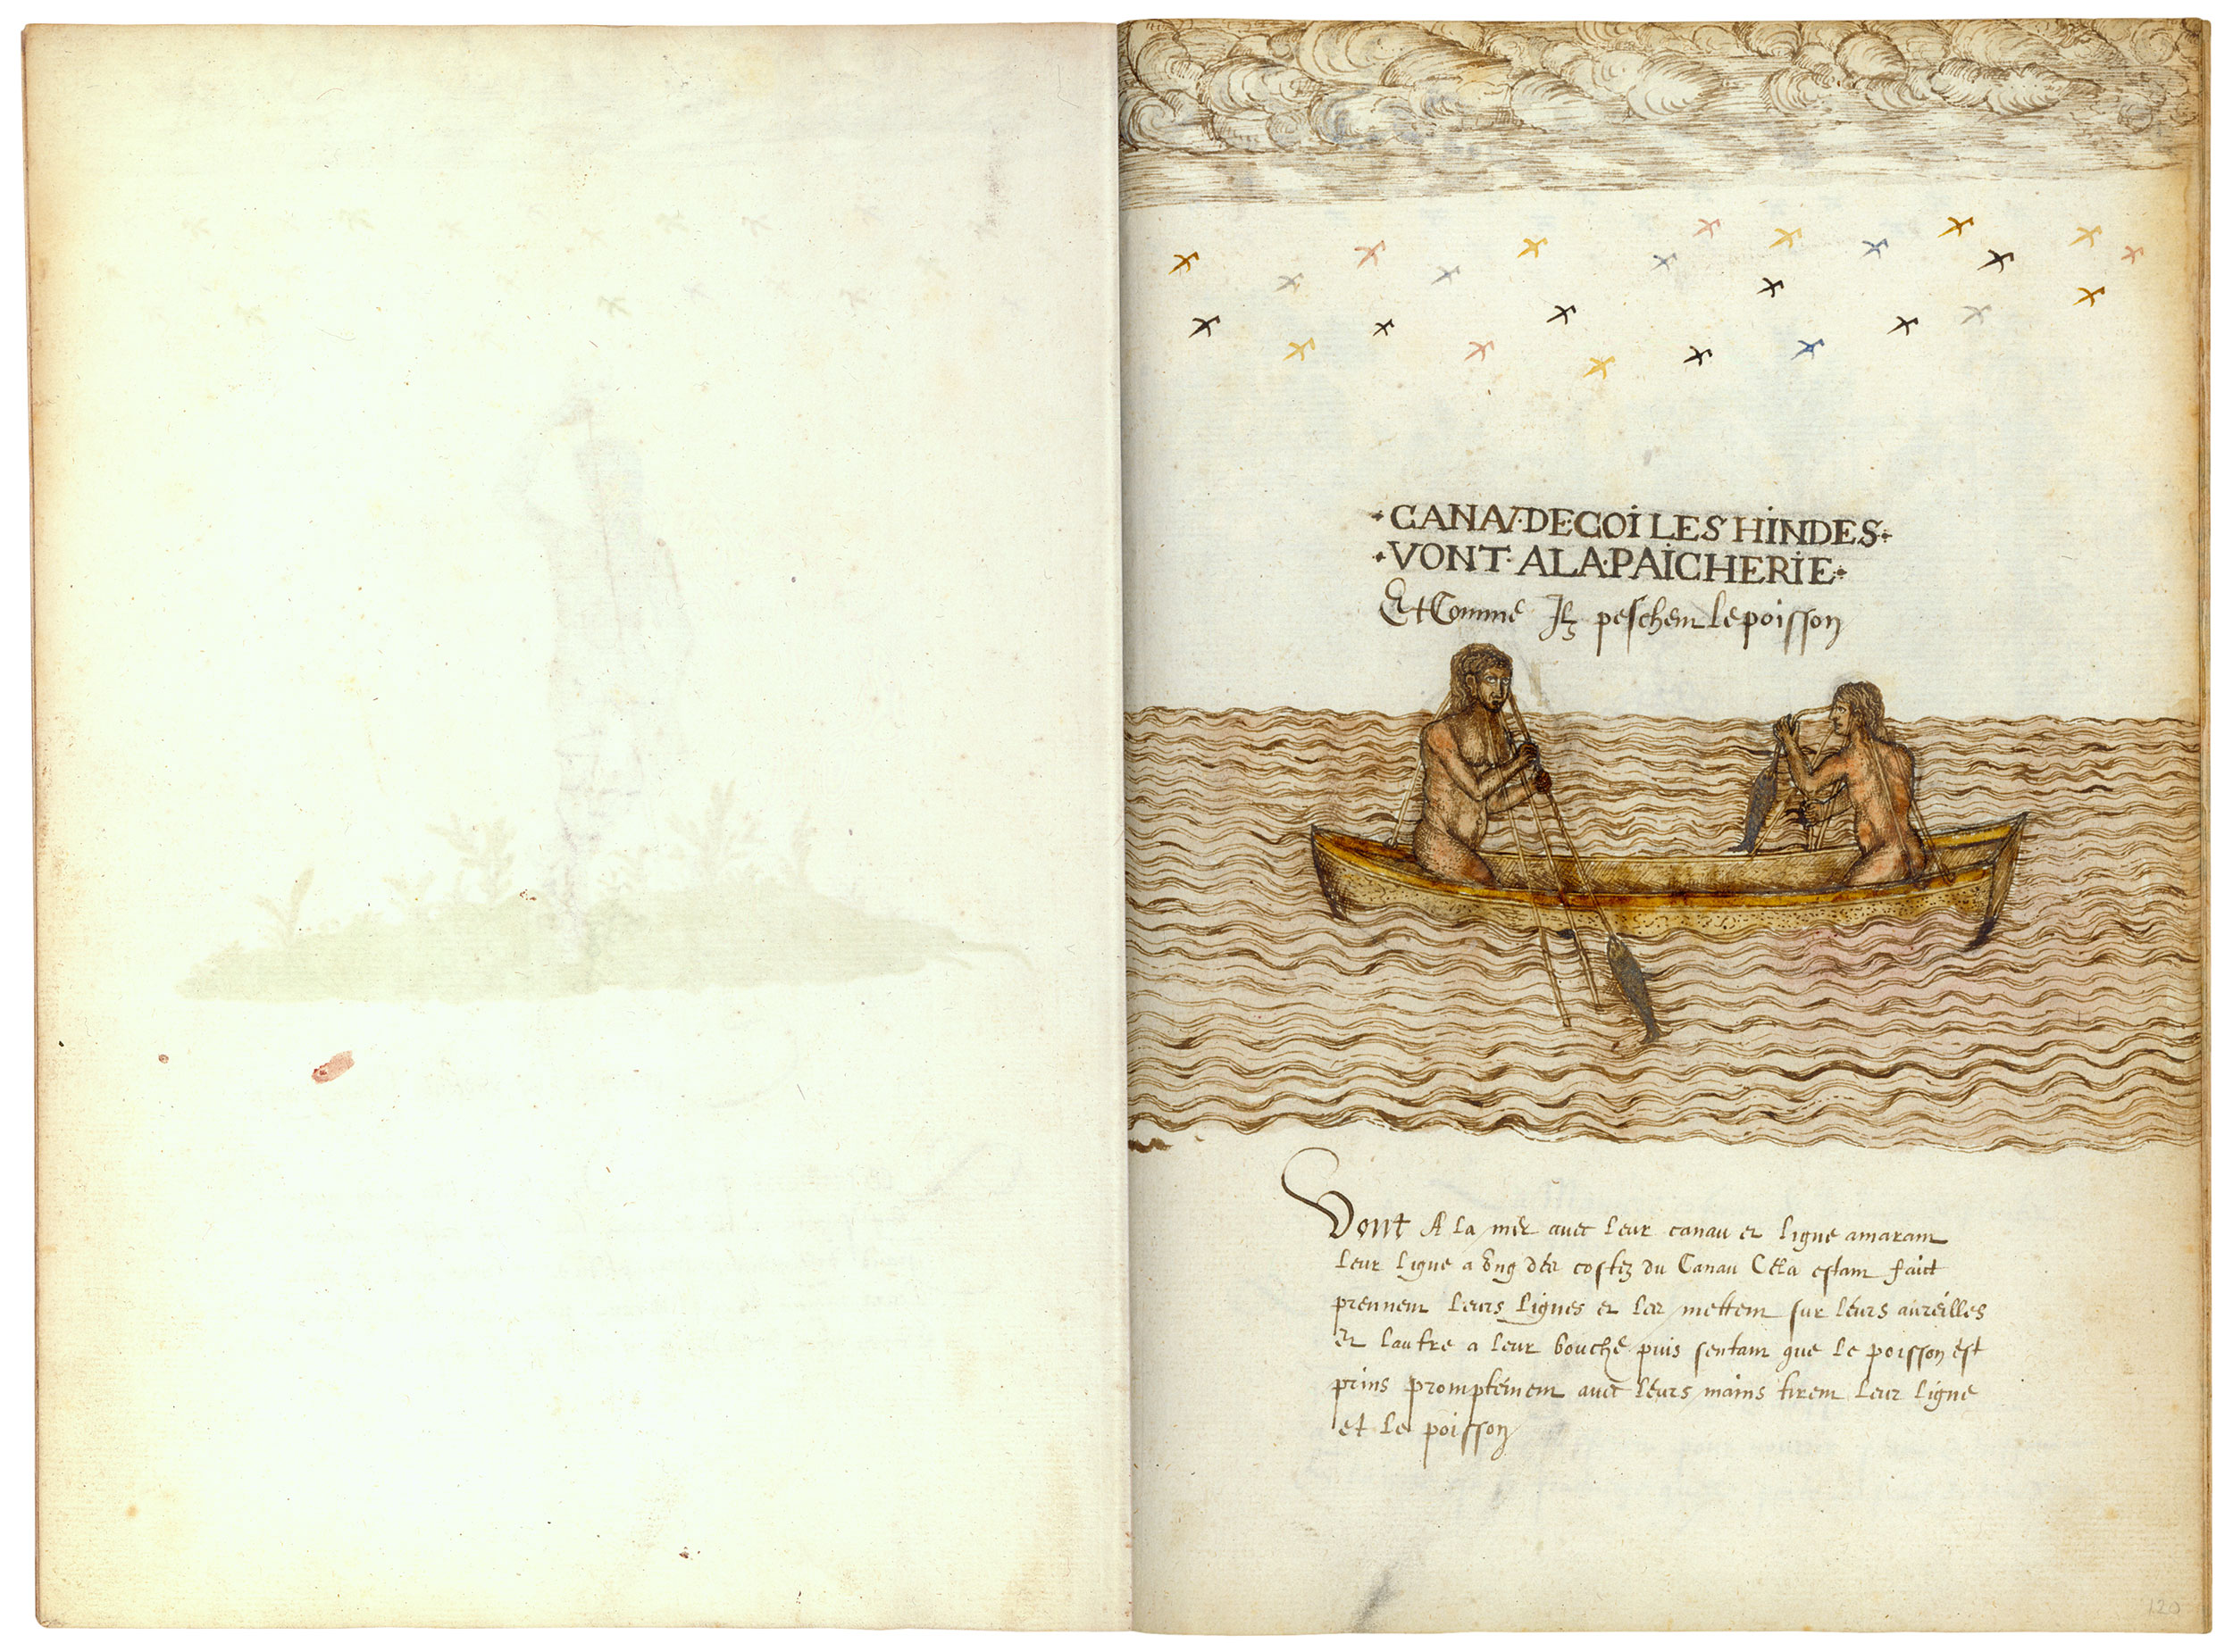 ·CANAV·DE·COI LES HINDES·
·VONT·A LA·PAICHERIE·
Et Comme Ilz peschent le poisson
Vont A la mer avec leur canau et ligne amarant
leur ligne a ung des costez du Canau Cela estant faict
prennent leurs lignes et les mettent sur leurs aureilles
et lautre a leur bouche puis sentant que le poisson est
prins promptement avec leurs mains tirent leur ligne
et le poisson
120